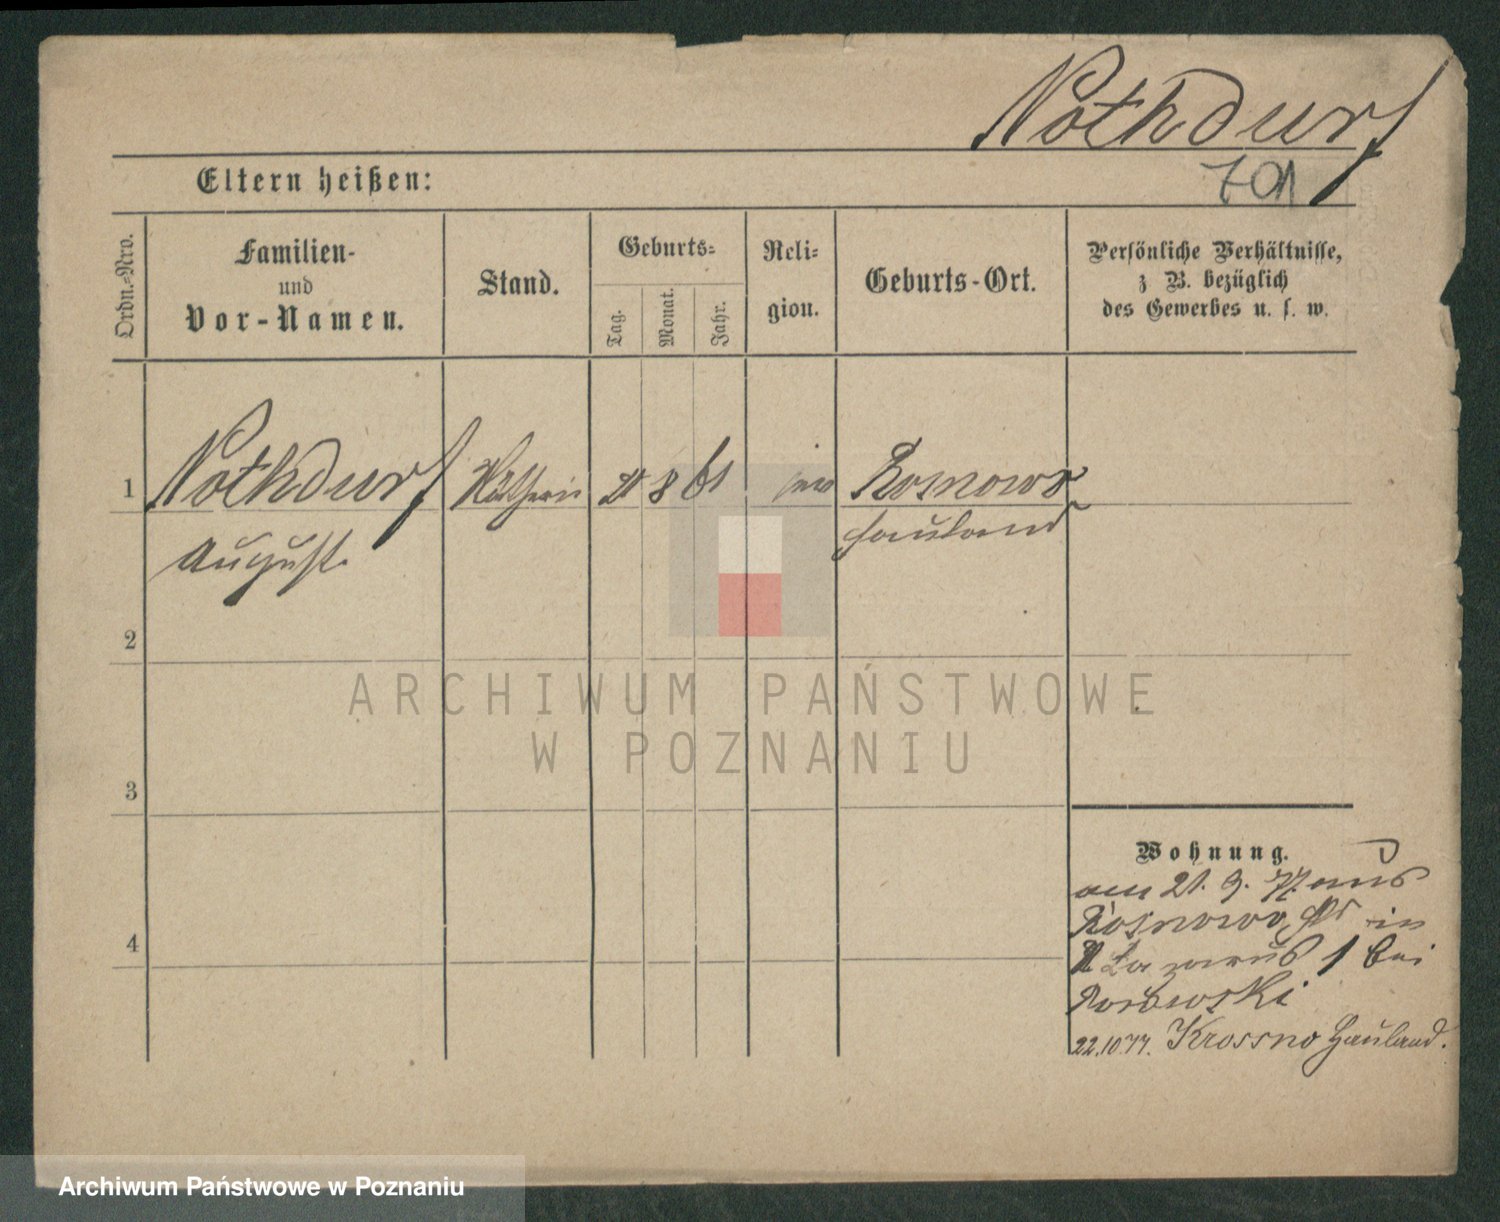 Nothdurf
701
Eltern heißen:
Ordn.-Nro.
Familien-
und
Vor-Namen.
Stand.
Geburts-
Tag.
Monat.
Jahr.
Reli-
gion.
Geburts-Ort.
Persönliche Verhältnisse,
z B. bezüglich
des Gewerbes u. s. w.
1
Nothdurf
8 61
Rosnowo
August.
Hauland
2
ARCHIWUM PAŃSTWOWE
W POZNANIU
3
Wohnung.
am 21. 9. 77. aus
Rosnowo Hld in
St Lazarus 1 bei
4
22.10.77. Krossno Hauland.
Archiwum Państwowe w Poznaniu